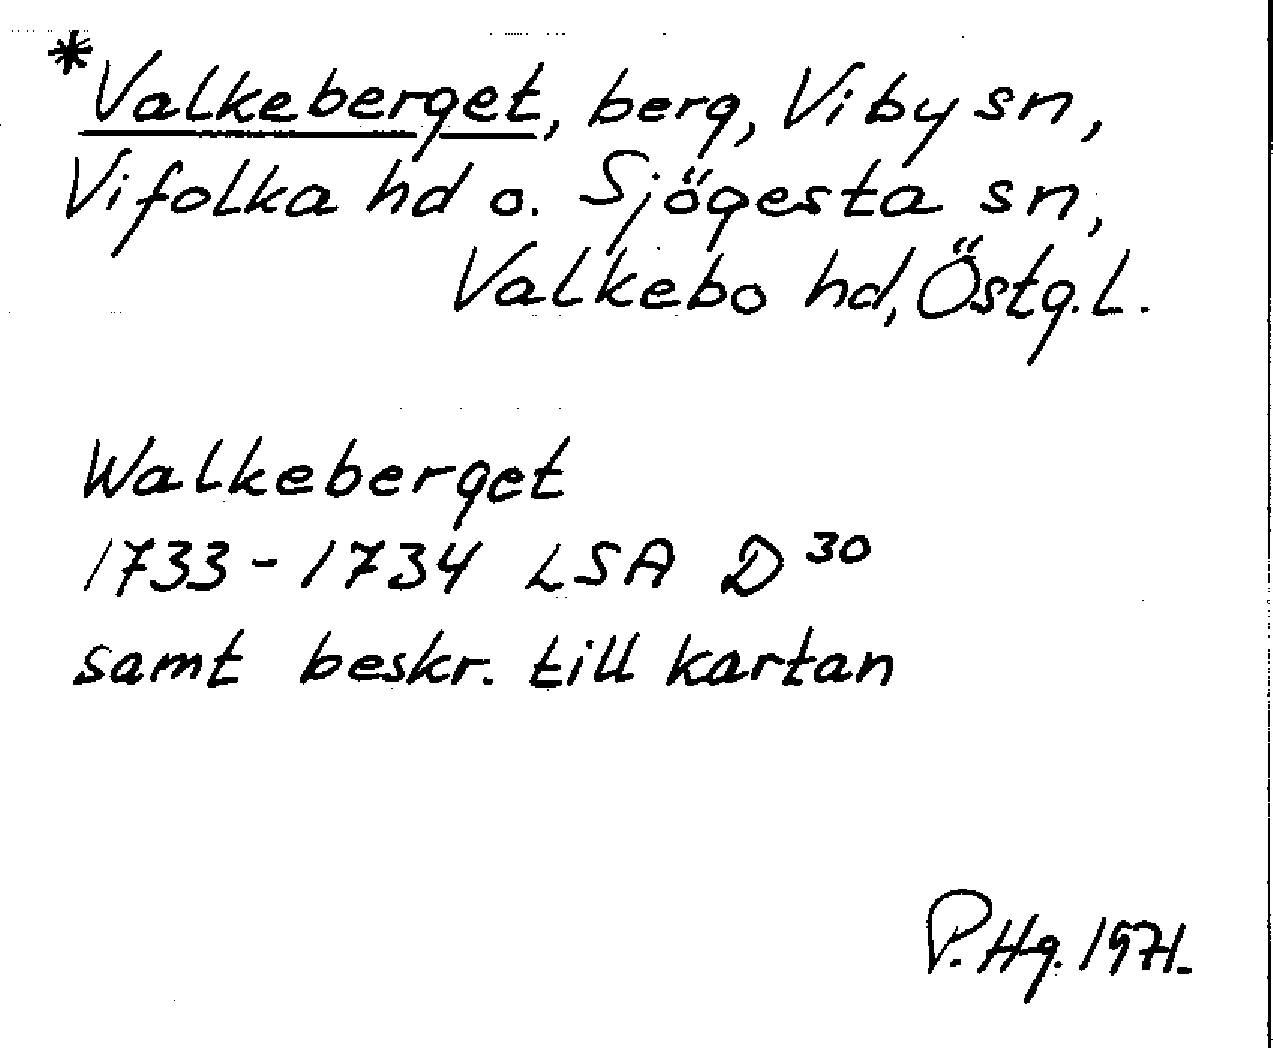 *Valkeberget, berg, Viby sn,
Vifolka hd o. Sjögesta sn,
Valkebo hd, Östg.L.
Walkeberget
1733-1734 LSA D³⁰
samt beskr. till kartan
P.Hg. 1971.